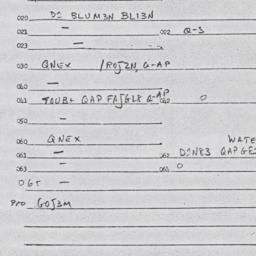 020 D: BLUM3N BL13N
021 — 022 Q-S
023 —
030 QNEX /ROJZN, G-AP
040 —
041 TOUB+ QAP FAJGL8 G-AP 042 O
050 —
060 QNEX WATE
061 — 062 D:N83 QAP GE
063 — 063 O
065 —
PRO GOJ3M